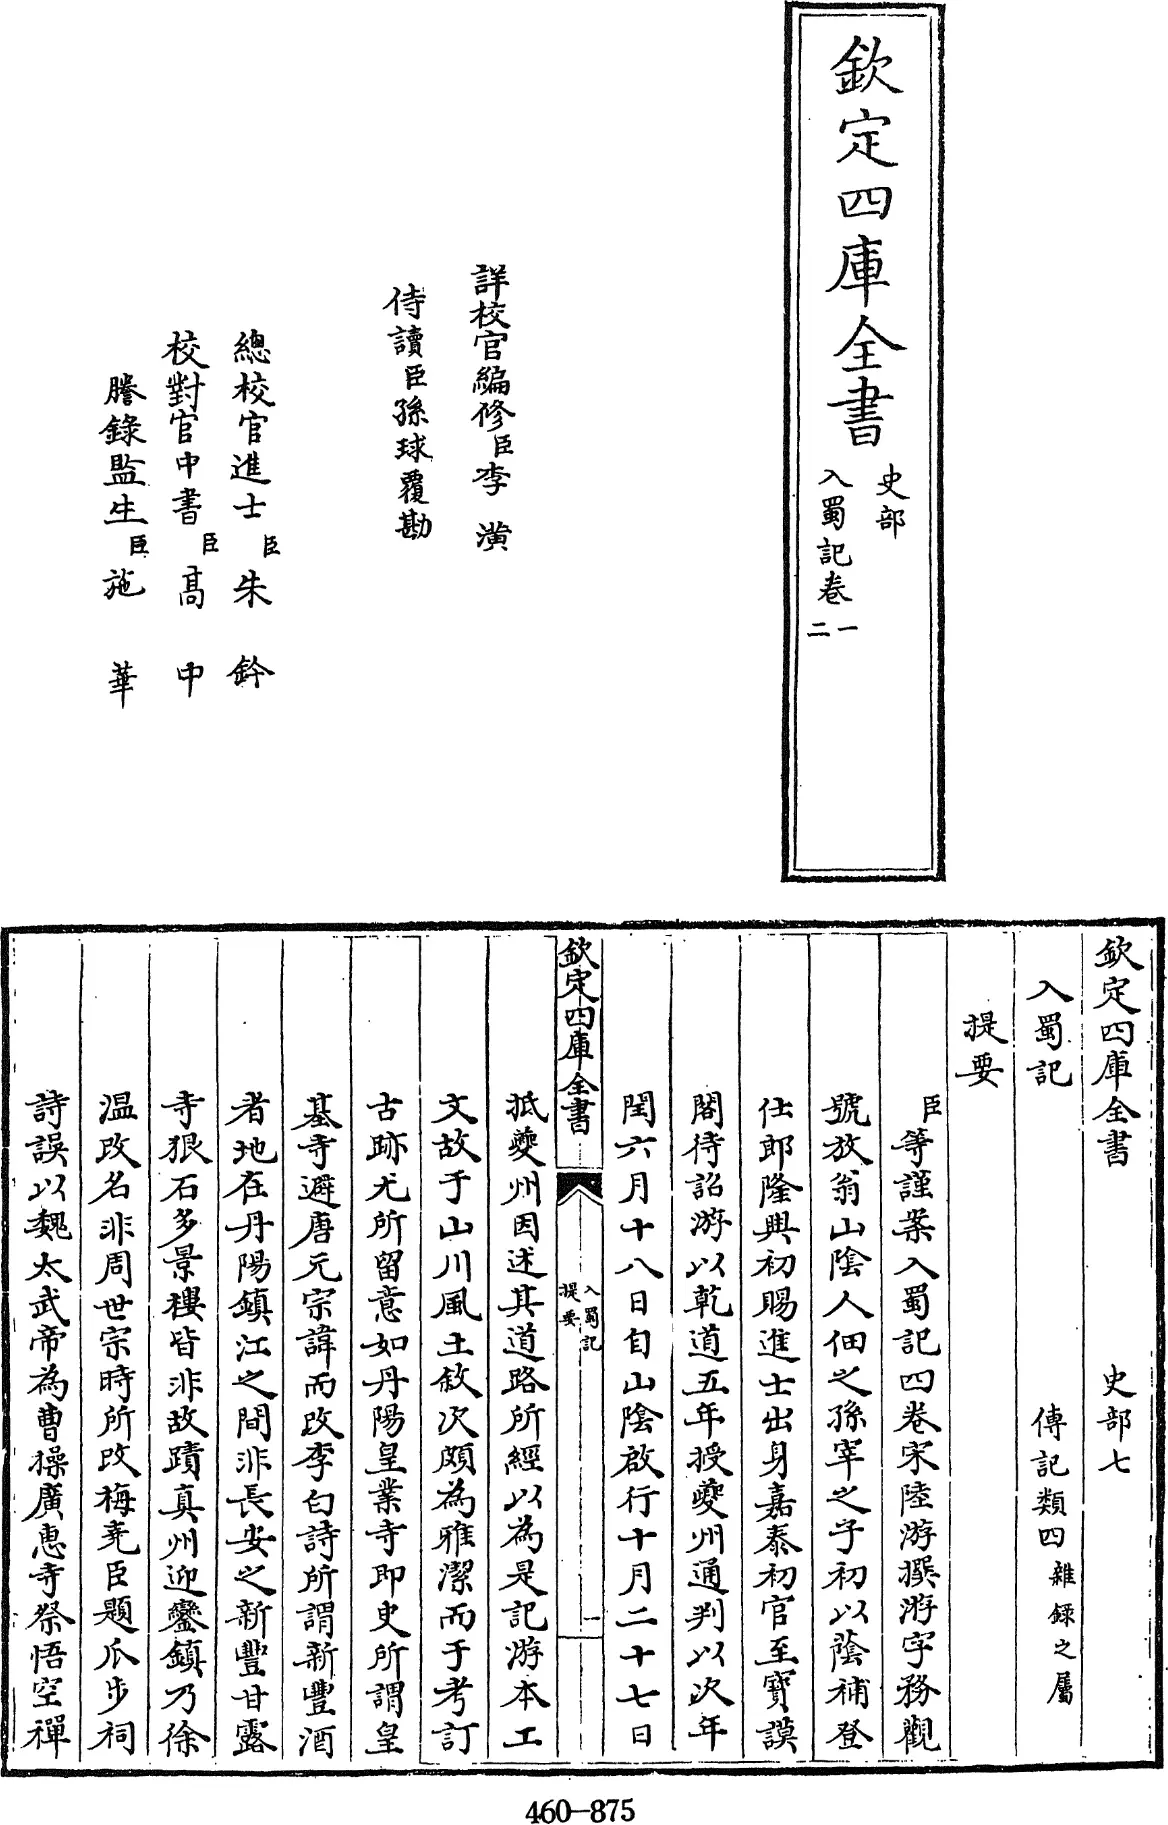 欽定四庫全書
史部
入蜀記卷一二
詳校官編修臣李潢
侍讀臣孫球覆勘
總校官進士臣朱鈐
校對官中書臣高中
謄錄監生臣施華
欽定四庫全書 史部七
入蜀記 傳記類四雜錄之屬
提要
臣等謹案入蜀記四卷宋陸游撰游字務觀
號放翁山陰人佃之孫宰之子初以蔭補登
仕郎隆興初賜進士出身嘉泰初官至寶謨
閣待詔游以乾道五年授夔州通判以次年
閏六月十八日自山陰啟行十月二十七日
欽定四庫全書 入蜀記提要 一
抵夔州因述其道路所經以為是記游本工
文故于山川風土敘次頗為雅潔而于考訂
古跡尤所留意如丹陽皇業寺即史所謂皇
基寺避唐元宗諱而改李白詩所謂新豐酒
者地在丹陽鎮江之間非長安之新豐甘露
寺狠石多景樓皆非故蹟真州迎鑾鎮乃徐
温改名非周世宗時所改梅堯臣題爪步祠
詩誤以魏太武帝為曹操廣惠寺祭悟空禪
460-875